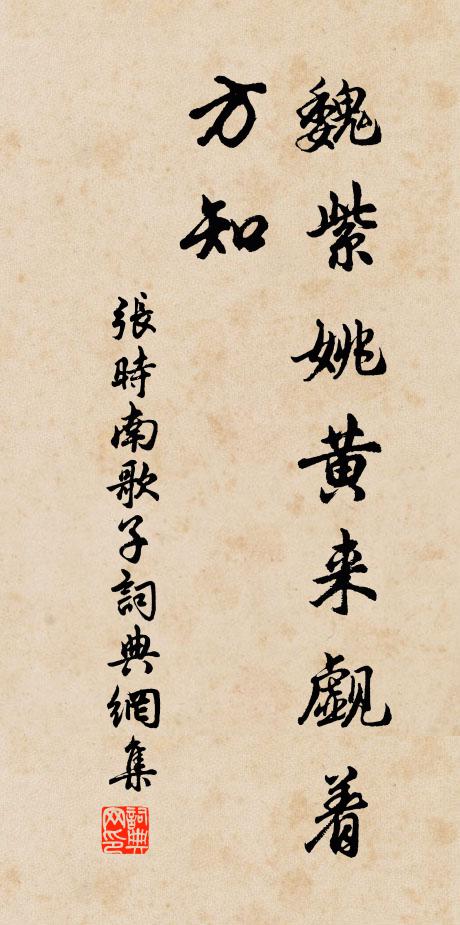 魏紫姚黄来觑着
方知
張時南歌子詞典網集
詞典网印